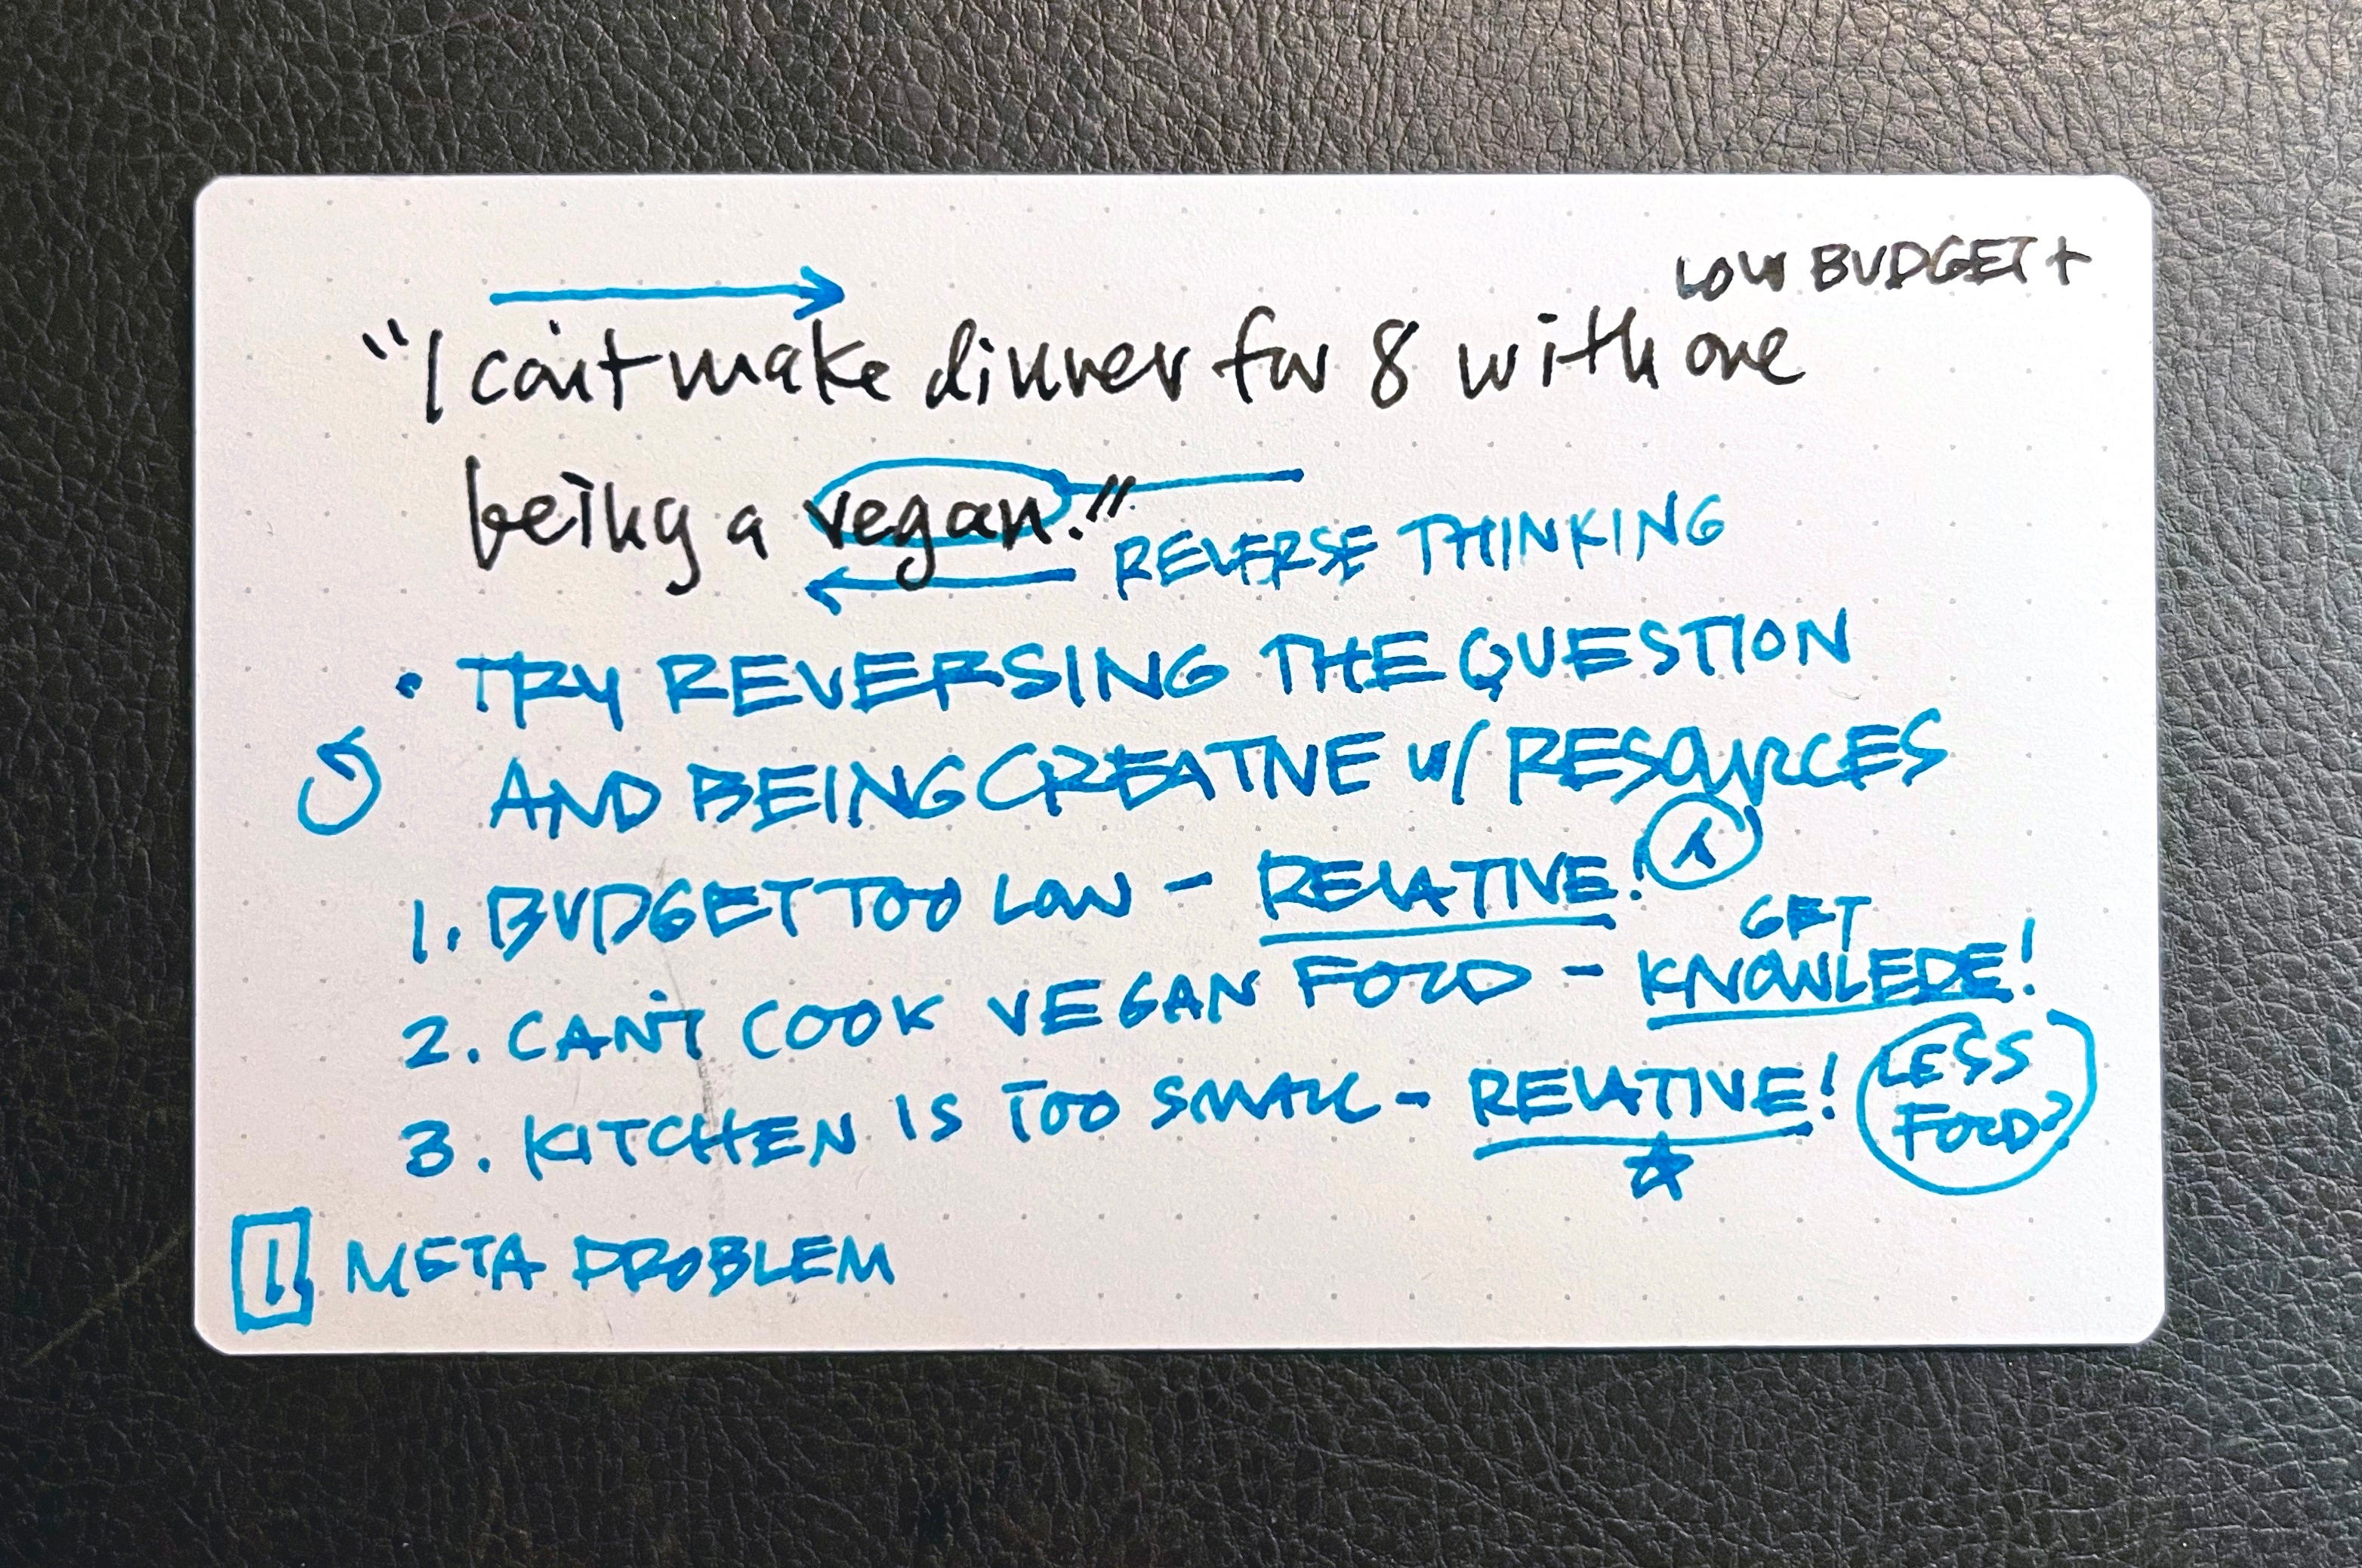 LOW BUDGET +
"I can't make dinner for 8 with one
being a vegan."
REVERSE THINKING
• TRY REVERSING THE QUESTION
AND BEING CREATIVE w/ RESOURCES
1. BUDGET TOO LOW - RELATIVE!
GET
2. CAN'T COOK VEGAN FOOD - KNOWLEDE!
3. KITCHEN IS TOO SMALL - RELATIVE!
LESS
FOOD?
1 META PROBLEM